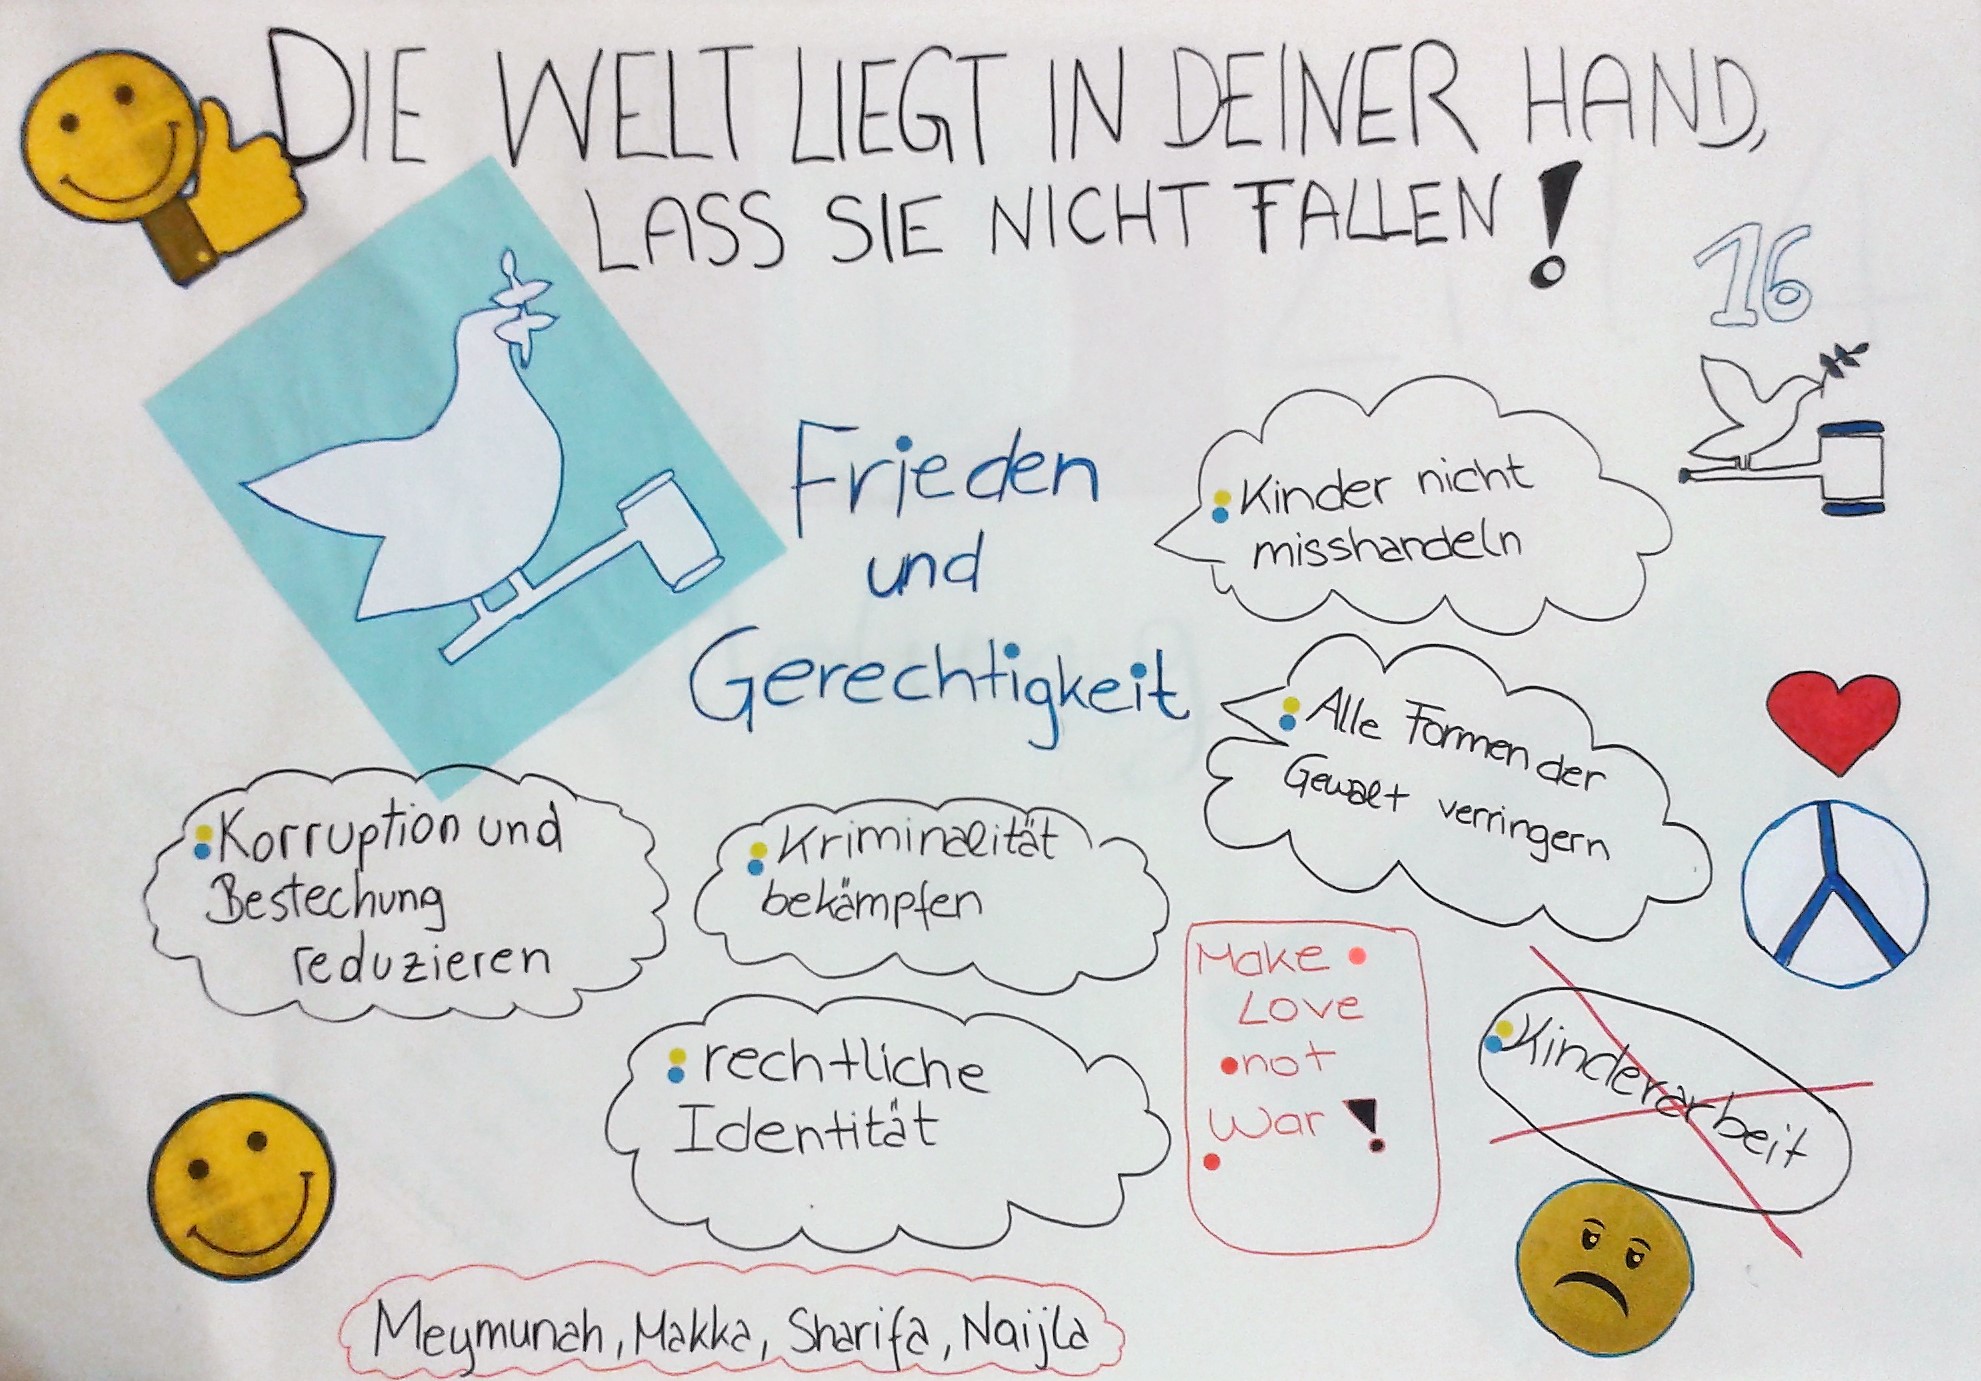 DIE WELT LIEGT IN DEINER HAND,
LASS SIE NICHT FALLEN!
16
Frieden
und
Gerechtigkeit
Kinder nicht
misshandeln
Alle Formen der
Gewalt verringern
Korruption und
Bestechung
reduzieren
Kriminalität
bekämpfen
rechtliche
Identität
Make
Love
not
war!
Kinderarbeit
Meymunah, Makka, Sharifa, Naijla